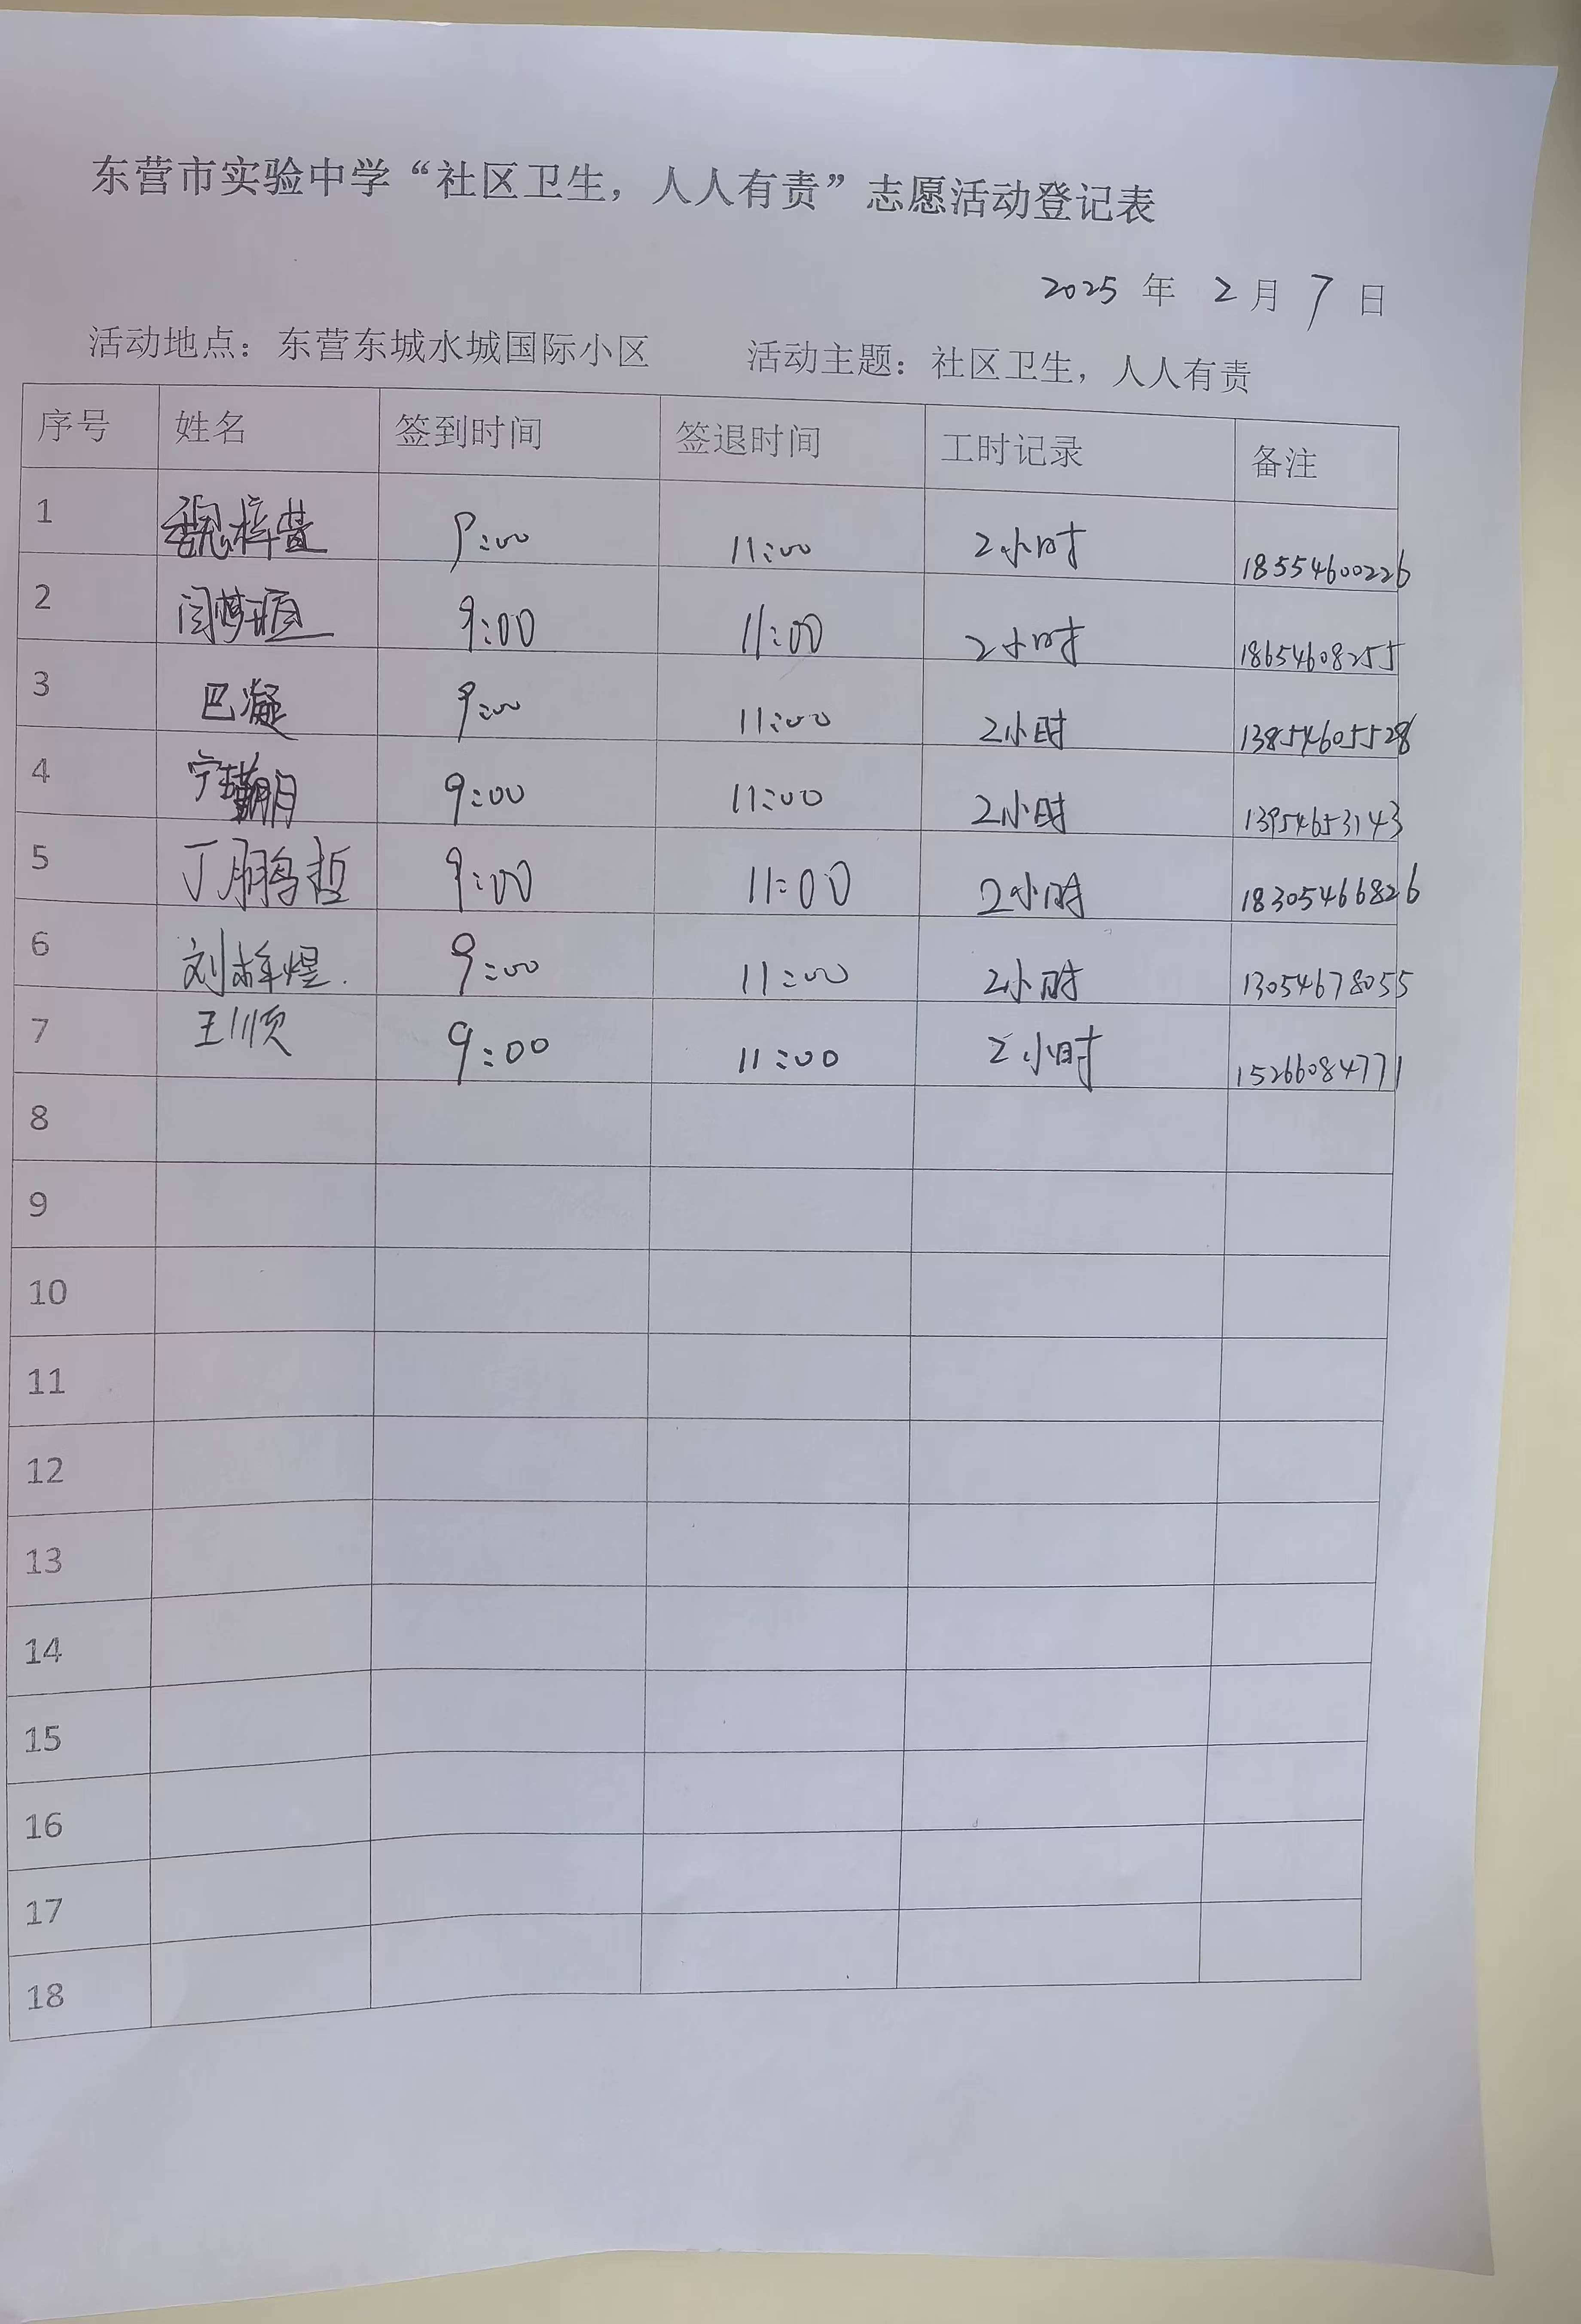 东营市实验中学“社区卫生，人人有责”志愿活动登记表
2025 年 2 月 7 日
活动地点：东营东城水城国际小区 活动主题：社区卫生，人人有责
序号 姓名 签到时间 签退时间 工时记录 备注
1 魏梓萱 9:00 11:00 2小时 18554600226
2 9:00 11:00 2小时 18654608255
3 巴凝 9:00 11:00 2小时 13854605528
4 9:00 11:00 2小时 13954653143
5 丁鹏哲 9:00 11:00 2小时 18305466826
6 刘梓煜 9:00 11:00 2小时 13054678055
7 王顺 9:00 11:00 2小时 15266084771
8
9
10
11
12
13
14
15
16
17
18